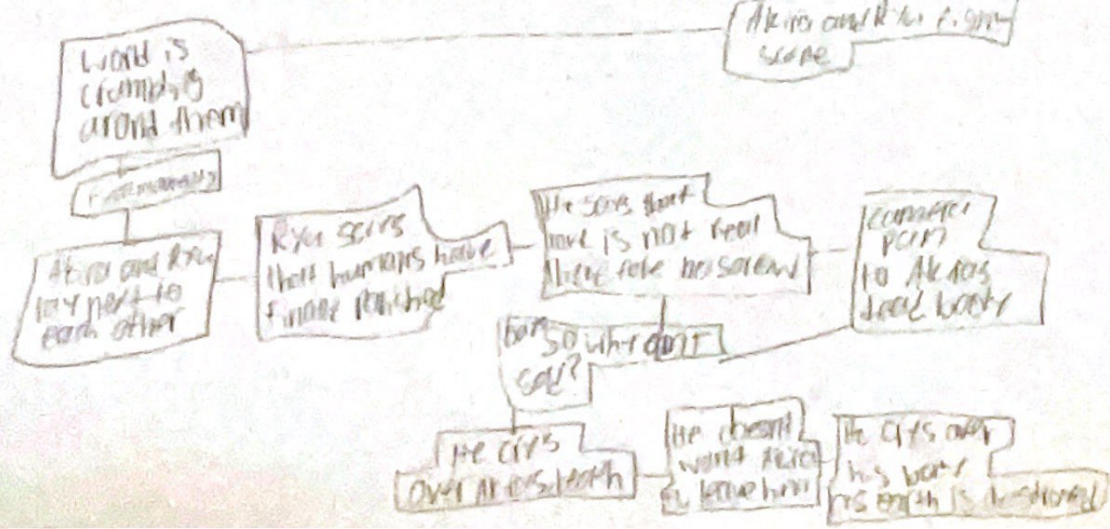 World is
crumbling
around them
Akira and Ryu
scene
Akira and Ryu
lay next to
each other
Ryu says
that humans have
He says that
love is not real
therefore he
camera
pan
to Akiras
dead body
So why
sad?
He crys
over Akiras death
He doesnt
want Akira
to leave him
He crys over
his body
as earth is destroyed